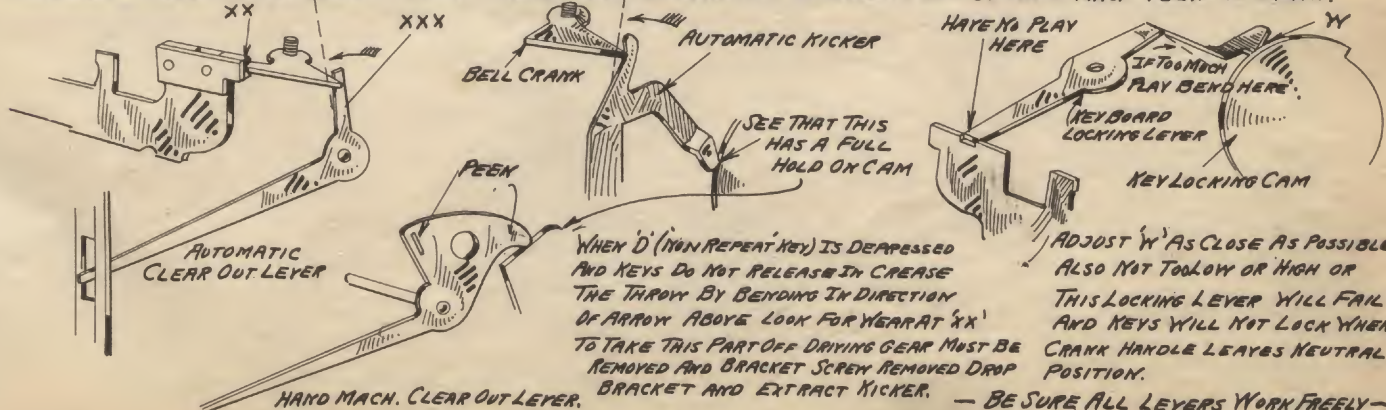 XX
XXX
AUTOMATIC
CLEAR OUT LEVER
BELL CRANK
AUTOMATIC KICKER
SEE THAT THIS
HAS A FULL
HOLD ON CAM
PEEN
HAND MACH. CLEAR OUT LEVER.
WHEN 'D' ('NON REPEAT' KEY) IS DEPRESSED
AND KEYS DO NOT RELEASE IN CREASE
THE THROW BY BENDING IN DIRECTION
OF ARROW ABOVE LOOK FOR WEAR AT 'XX'
TO TAKE THIS PART OFF DRIVING GEAR MUST BE
REMOVED AND BRACKET SCREW REMOVED DROP
BRACKET AND EXTRACT KICKER.
HAVE NO PLAY
HERE
W
IF TOO MUCH
PLAY BEND HERE.
KEYBOARD
LOCKING LEVER
KEY LOCKING CAM
ADJUST 'W' AS CLOSE AS POSSIBLE
ALSO NOT TOO LOW OR HIGH OR
THIS LOCKING LEVER WILL FAIL
AND KEYS WILL NOT LOCK WHEN
CRANK HANDLE LEAVES NEUTRAL
POSITION.
— BE SURE ALL LEVERS WORK FREELY —